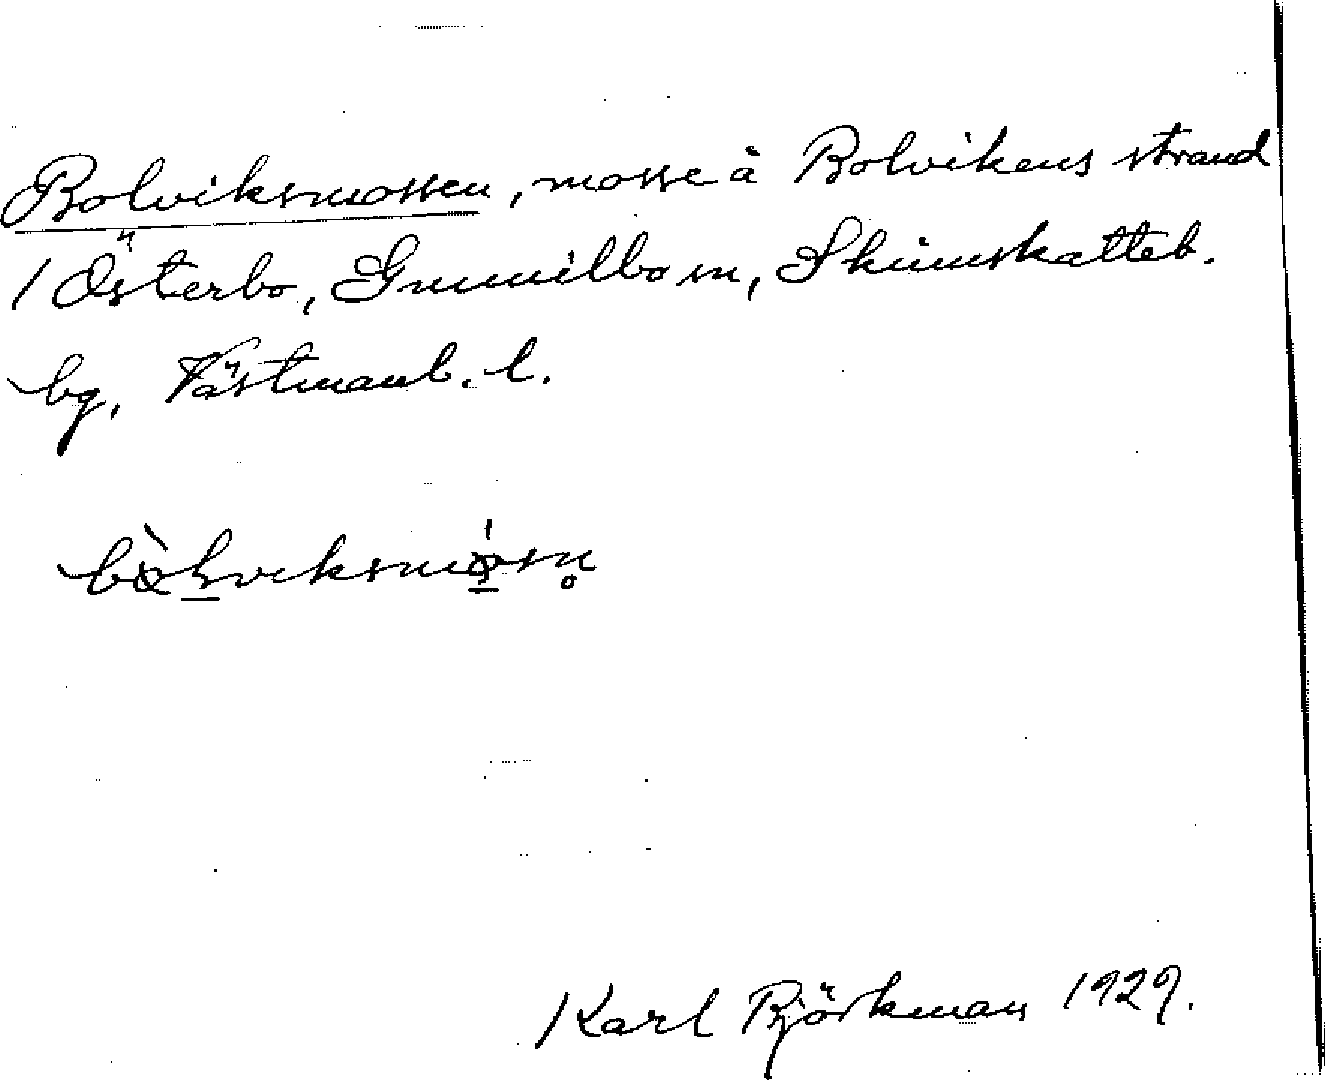 Bolviksmossen, mosse å Bolvikens strand
/ Österbo, Gunnilbo sn, Skinnskatteb.
bg, Västmanl. l.
Karl Björkman 1929.